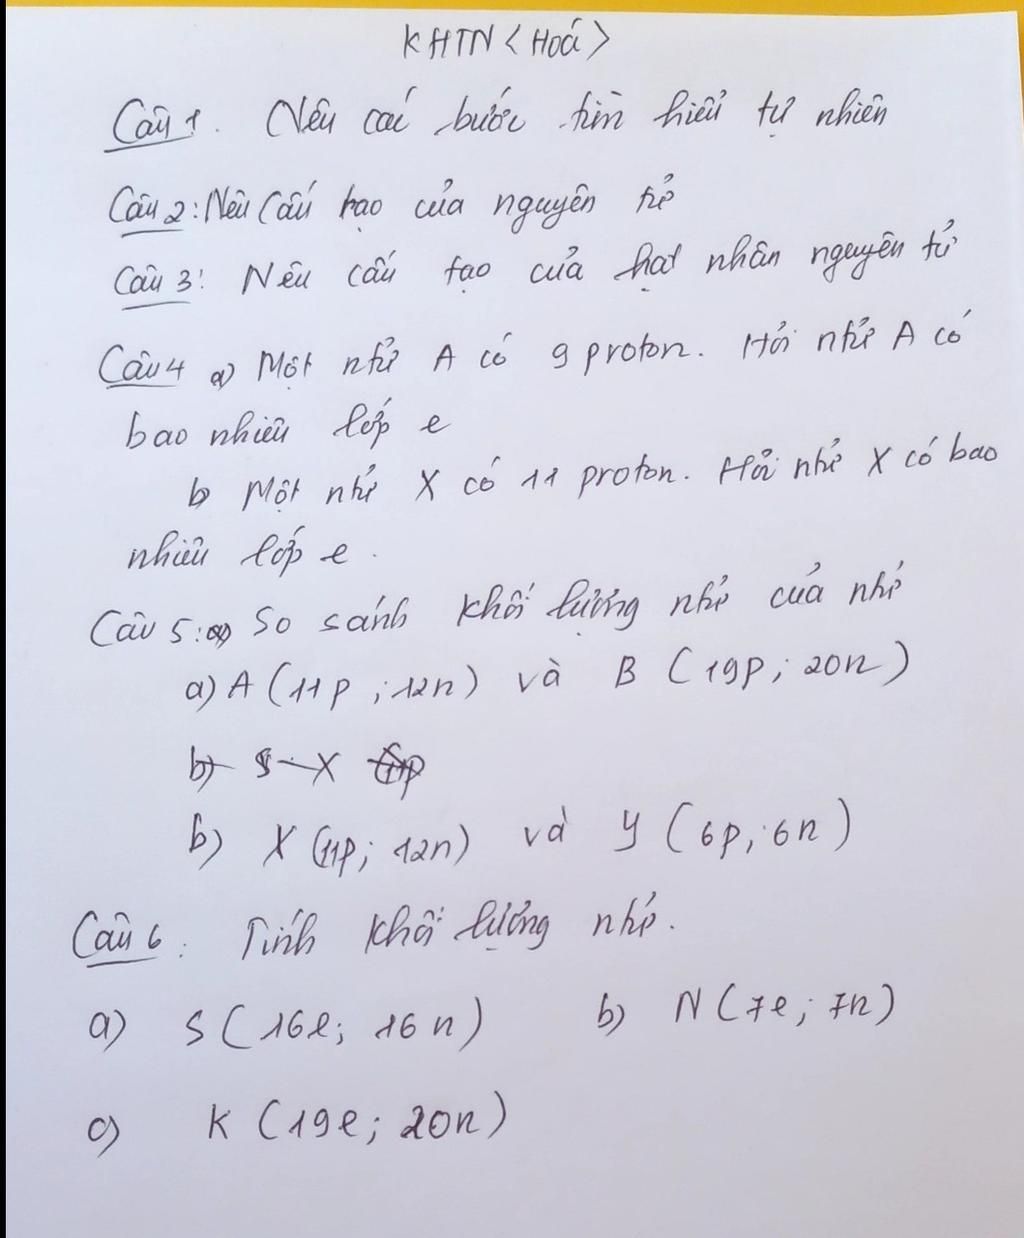 KHTN <Hoá>
Câu 1. Nêu các bước tìm hiểu tự nhiên
Câu 2: Nêu Cấu tạo của nguyên tử
Câu 3: Nêu cấu tạo của hạt nhân nguyên tử
Câu 4 a) Một ntử A có 9 proton. Hỏi ntử A có
bao nhiêu lớp e
b Một ntử X có 11 proton. Hỏi ntử X có bao
nhiêu lớp e.
Câu 5: So sánh khối lượng ntử của ntử
a) A (11p ; 12n) và B (19p; 20n)
b) X (11p; 12n) và Y (6p; 6n)
Câu 6: Tính khối lượng ntử.
a) S (16e; 16n) b) N (7e; 7n)
c) K (19e; 20n)